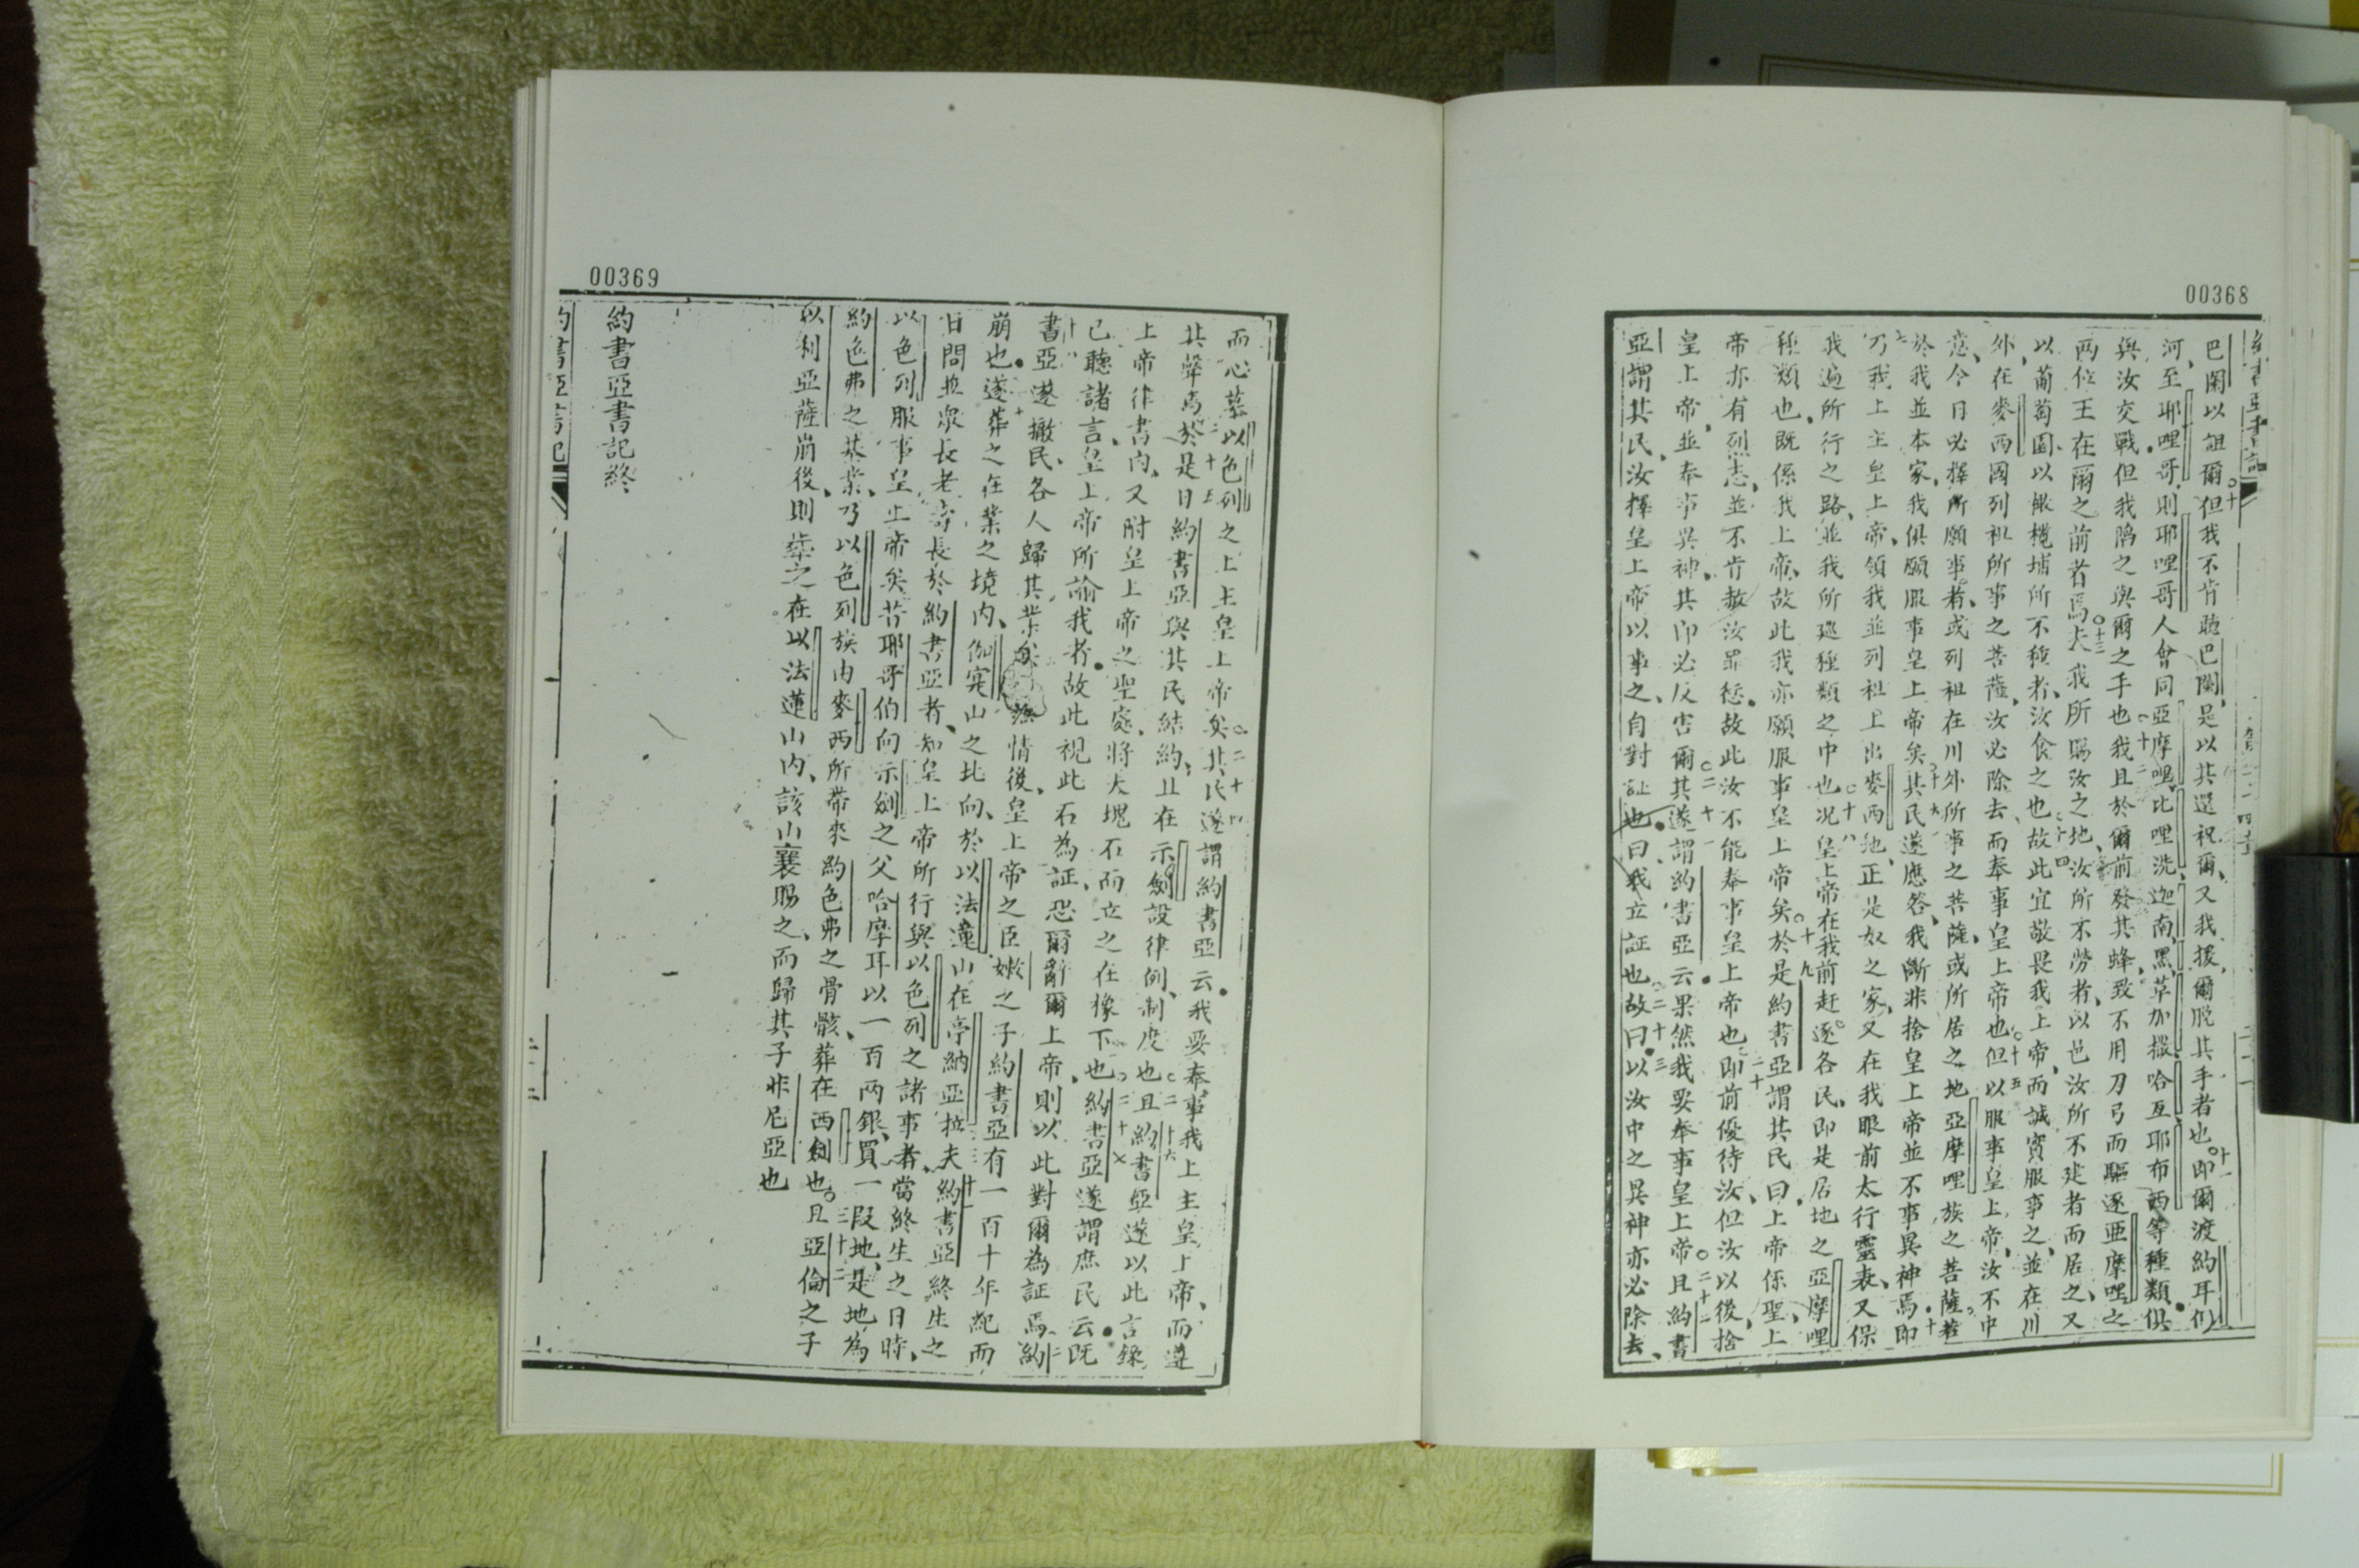 00368
約書亞書記
巴闌以詛爾○十但我不肯聽巴闌是以其還祝爾又我援爾脫其手者也○十一即爾渡約耳但
河至耶哩哥則耶哩哥人會同亞摩哩比哩洗迦南黑草加擺哈互耶布西等種類俱
與汝交戰但我隔之與爾之手也○十二我且於爾前發其蜂致不用刀弓而驅逐亞摩哩之
兩位王在爾之前者焉○十三夫我所賜汝之地汝所不勞者以邑汝所不建者而居之又
以葡萄園以橄欖埔所不種者汝食之也○十四故此宜敬畏我上帝而誠實服事之並在川
外在麥西國列祖所事之菩薩汝必除去而奉事皇上帝也○十五但以服事皇上帝汝不中
意今日必擇所願事者或列祖在川外所事之菩薩或所居之地亞摩哩族之菩薩若
於我並本家我俱願服事皇上帝矣其民遂應答我斷非捨皇上帝並不事異神焉○十七即
乃我上主皇上帝領我並列祖上出麥西地正是奴之家又在我眼前太行靈表又保
我遍所行之路並我所遊種類之中也○十八況皇上帝在我前赶逐各民即是居地之亞摩哩
種類也既係我上帝故此我亦願服事皇上帝矣○十九於是約書亞謂其民曰上帝係聖上
帝亦有烈志並不肯赦汝罪愆故此汝不能奉事皇上帝也○二十即前優待汝但汝以後捨
皇上帝並奉事異神其即必反害爾○二十一其遂謂約書亞云果然我要奉事皇上帝○二十二且約書
亞謂其民汝擇皇上帝以事之自對証也曰我立証也○二十三故曰以汝中之異神亦必除去
00369
而心慕以色列之上主皇上帝矣○二十四其民遂謂約書亞云我要奉事我上主皇上帝而遵
其聲焉○二十五於是日約書亞與其民結約且在示劍設律例制度也○二十六且約書亞遂以此言錄
上帝律書內又附皇上帝之聖處將大塊石而立之在橡下也○二十七約書亞遂謂庶民云既
已聽諸言皇上帝所諭我者故此視此石為証恐爾辭爾上帝則以此對爾為証焉○二十八約
書亞遂撤民各人歸其業矣情後皇上帝之臣嫩之子約書亞有一百十年紀而
崩也遂葬之在業之境內伽実山之北向於以法蓮山在亭納亞拉夫約書亞終生之
日問並眾長老壽長於約書亞者知皇上帝所行與以色列之諸事者當終生之日時
以色列服事皇上帝矣昔耶哥伯向示劍之父哈摩耳以一百兩銀買一段地是地為
約色弗之基業乃以色列族由麥西所帶來約色弗之骨骸葬在西劍也○三十三且亞倫之子
以利亞薩崩後則葬之在以法蓮山內該山襄賜之而歸其子非尼亞也
約書亞書記終
約書亞書記